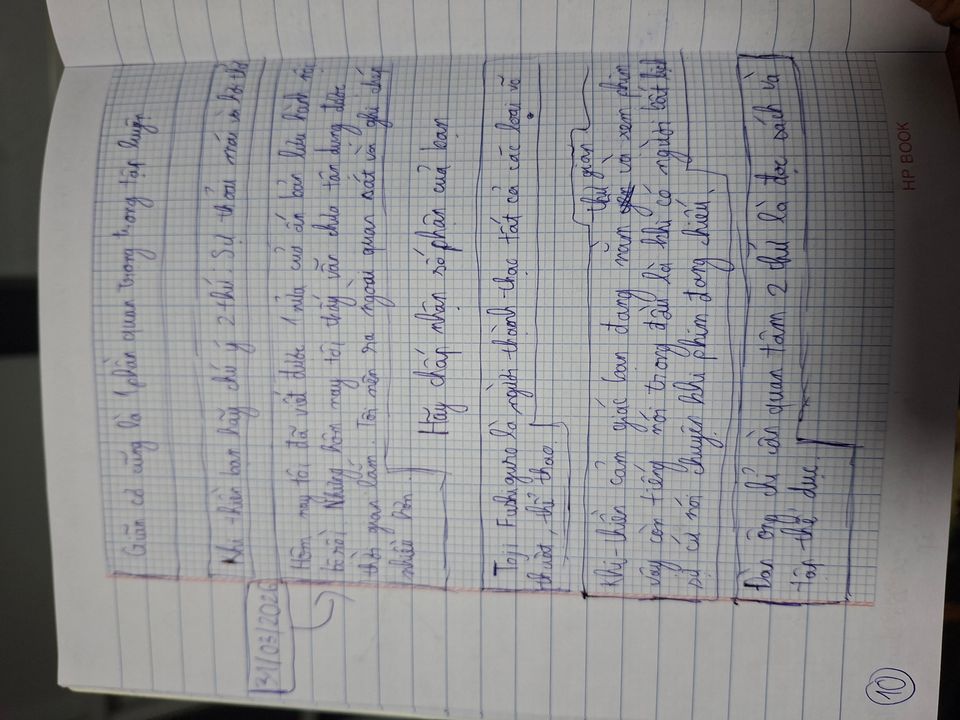 Giãn cơ cũng là 1 phần quan trọng trong tập luyện
Khi thiền bạn hãy chú ý 2 thứ: Sự thoải mái và hơi thở
31/03/2026
Hôm nay tôi đã viết được 1 nửa cuốn ấn bản liêu hành
tơ rồi. Nhưng hôm nay tôi thấy vẫn chưa tận dụng được
thời gian lắm. Tôi nên ra ngoài quan sát và ghi chép
nhiều hơn.
Hãy chấp nhận số phận của bạn
Toji Fushiguro là người thành thạo tất cả các loại võ
thuật, thể thao
Khi thiền cảm giác bạn đang nằm thư giãn và xem phim
vậy còn tiếng nói trong đầu là khi có người bất lịch
sự cứ nói chuyện khi phim đang chiếu.
Đàn ông chỉ cần quan tâm 2 thứ là đọc sách và
tập thể dục.
10
HP BOOK